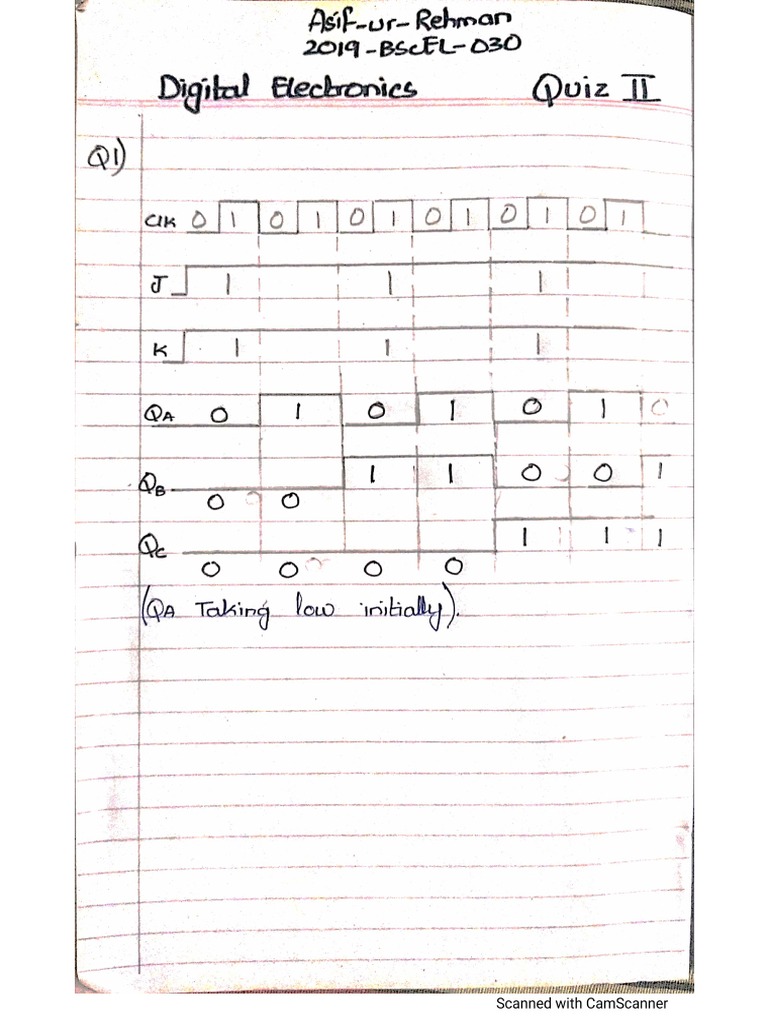 Asif-ur-Rehman
2019-BScEL-030
Digital Electronics Quiz II
Q1)
ClK 0 1 0 1 0 1 0 1 0 1 0 1
J 1 1 1
K 1 1 1
QA 0 1 0 1 0 1 0
QB 0 0 1 1 0 0 1
QC 0 0 0 0 1 1 1
(QA Taking low initially).
Scanned with CamScanner